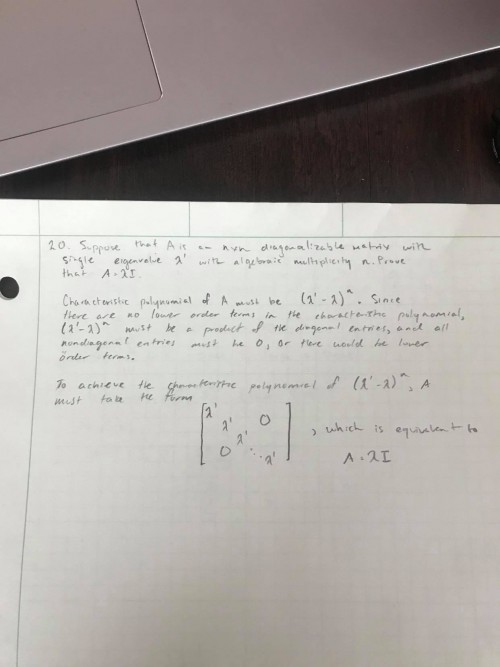 20. Suppose that A is an nxn diagonalizable matrix with
single eigenvalue λ' with algebraic multiplicity n. Prove
that A = λI.
Characteristic polynomial of A must be (λ'-λ)ⁿ. Since
there are no lower order terms in the characteristic polynomial,
(λ'-λ)ⁿ must be a product of the diagonal entries, and all
nondiagonal entries must be 0, or there would be lower
order terms.
To achieve the characteristic polynomial of (λ'-λ)ⁿ, A
must take the form
[λ'
λ' 0
λ'
0 ⋱ λ'] , which is equivalent to
A = λI